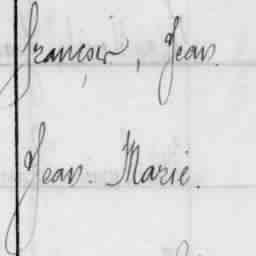 François, Jean.
Jean. Marie.